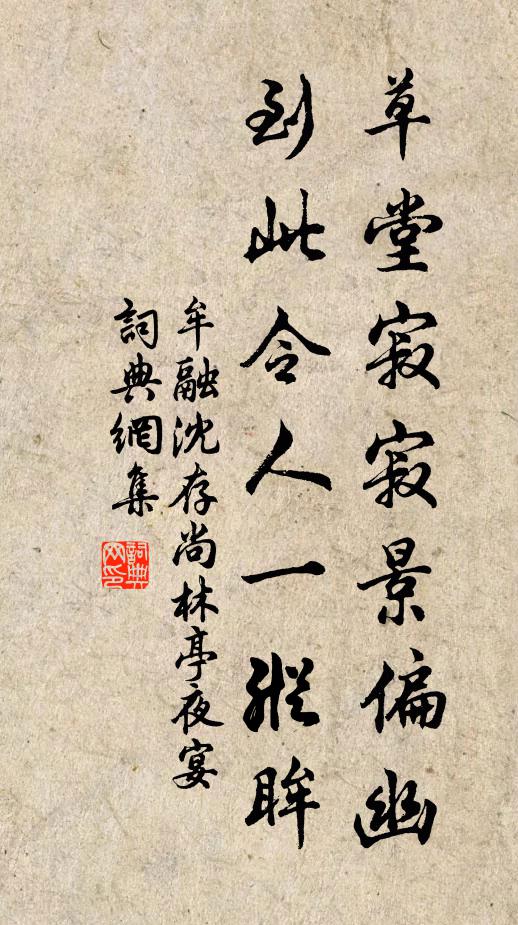 草堂寂寂景偏幽
到此令人一縱眸
牟融沈存尚林亭夜宴
詞典網集
詞典网印